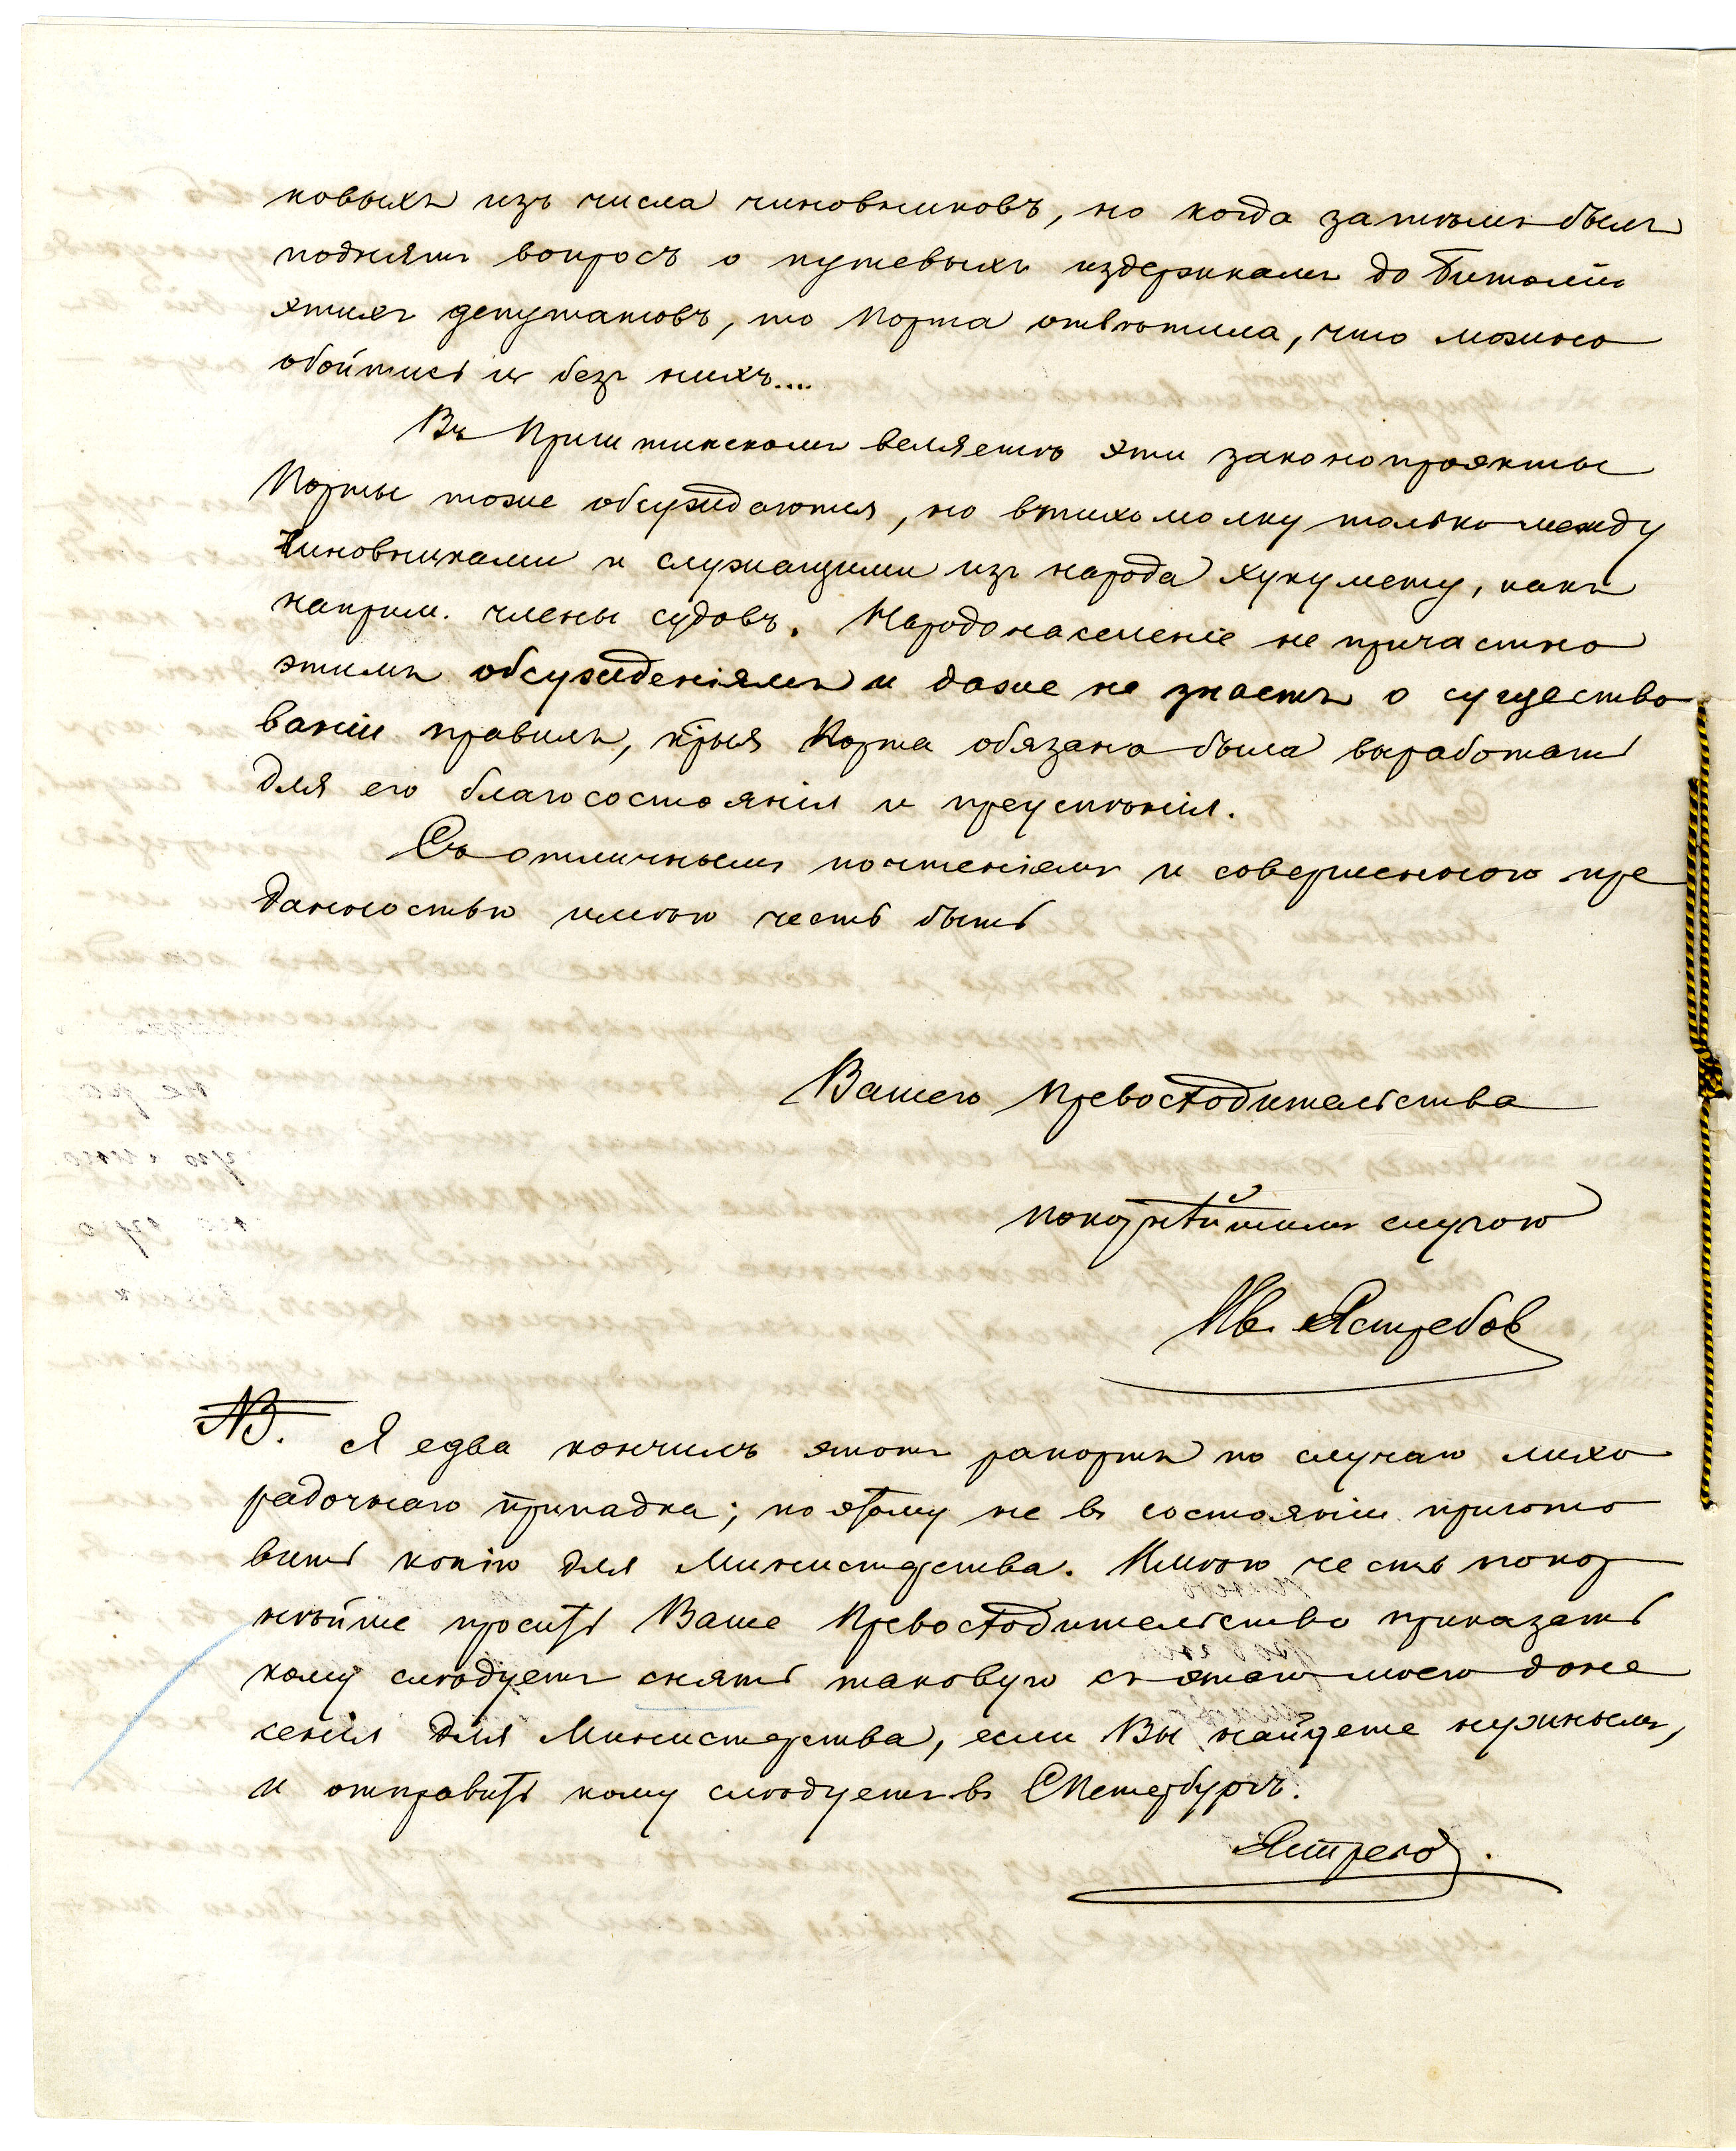 ковыхъ изъ числа чиновниковъ, но когда затѣмъ былъ
поднятъ вопросъ о путевыхъ издержкахъ до Битоліи
этихъ депутатовъ, то Порта отвѣтила, что можно
обойтись и безъ нихъ....
Въ Приштинскомъ веляетѣ эти законопроэкты
Порты тоже обсуждаются, но втихомолку только между
чиновниками и служащими изъ народа хукумету, какъ
наприм. члены судовъ. Народонаселеніе не причастно
этимъ обсужденіямъ и даже не знаетъ о существо
ваніи правилъ, к̃рыя Порта обязана была выработать
для его благосостоянія и преуспѣнія.
Съ отличнымъ почтеніемъ и совершенною пре
данностью имѣю честь быть
Вашего Превосходительства
покорнѣйшимъ слугою
Ив. Ястребов
NB. Я едва кончилъ этотъ рапортъ по случаю лихо
радочнаго припадка; поэтому не въ состояніи пригото
вить копію для Министерства. Имѣю честь покор
нѣйше просить Ваше Превосходительство приказать
кому слѣдуетъ снять таковую съ этого моего доне
сенія для Министерства, если Вы найдете нужнымъ,
и отправить кому слѣдуетъ въ СПетербургъ.
Ястребов.